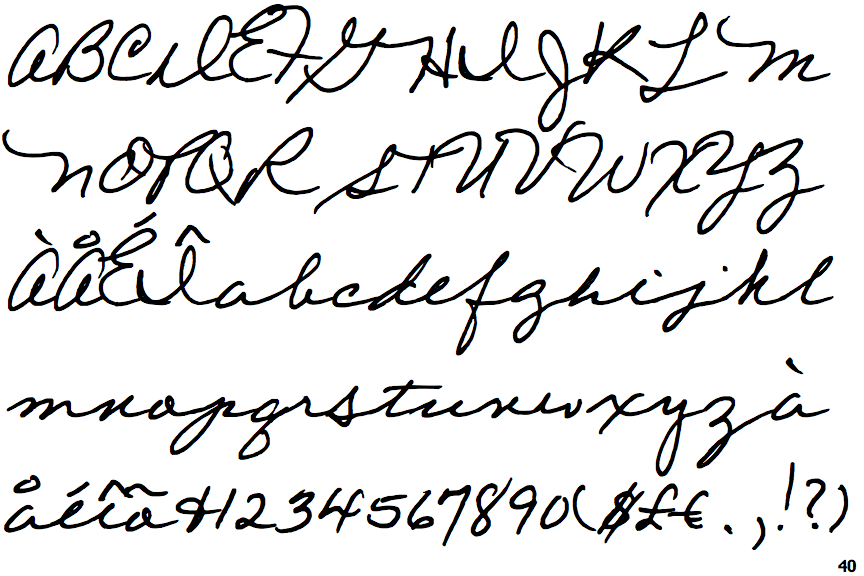 ABCDEFGHIJKLM
NOPQRSTUVWXYZ
ÀÅÉÎabcdefghijkl
mnopqrstuvwxyzà
åéîõ&1234567890($£€.,!?)
40